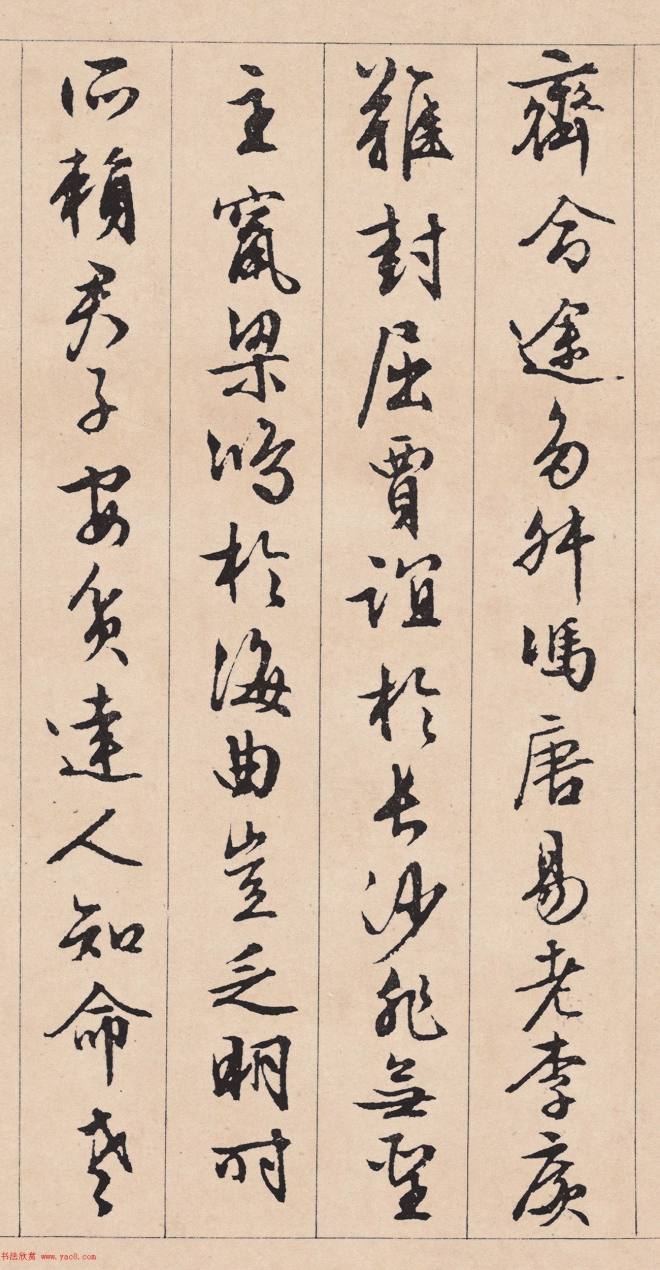 齊命途多舛馮唐易老李廣
難封屈賈誼於長沙非無聖
主竄梁鴻於海曲豈乏明時
所賴君子安貧達人知命老
书法欣赏 www.yac8.com